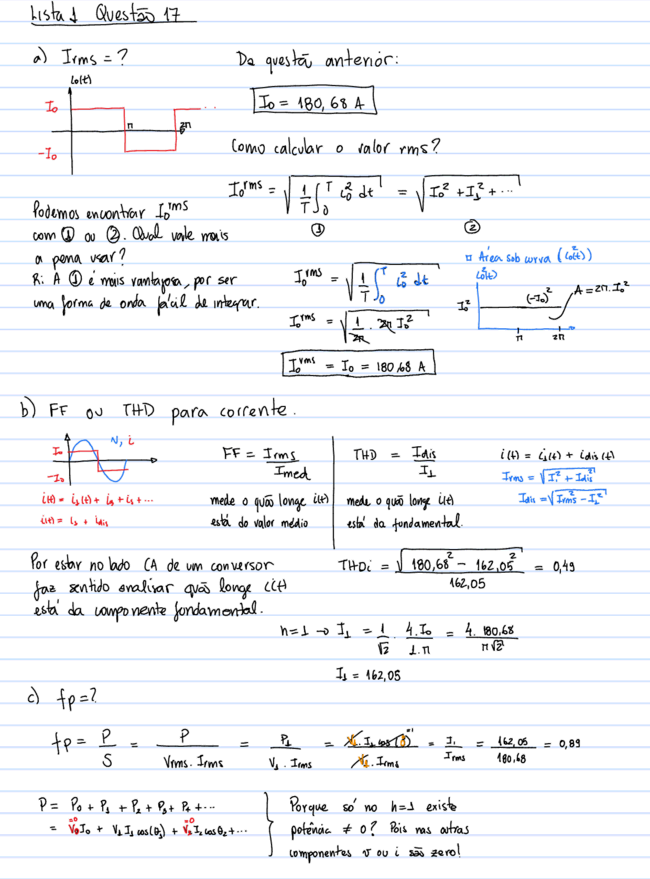 Lista 1 Questão 17
a) Irms = ?
Da questão anterior:
i₀(t)
I₀
-I₀
π
2π
I₀ = 180,68 A
Como calcular o valor rms?
I₀ʳᵐˢ = √(1/T ∫₀ᵀ i₀² dt) = √(I₀² + I₁² + ...)
① ②
Podemos encontrar I₀ʳᵐˢ
com ① ou ②. Qual vale mais
a pena usar?
R: A ① é mais vantajosa, por ser
uma forma de onda fácil de integrar.
I₀ʳᵐˢ = √(1/T ∫₀ᵀ i₀² dt)
I₀ʳᵐˢ = √(1/2π · 2π I₀²)
I₀ʳᵐˢ = I₀ = 180,68 A
Área sob curva (i₀²(t))
i₀²(t)
I₀²
(-I₀)²
A = 2π. I₀²
π
2π
b) FF ou THD para corrente.
v, i
I₀
-I₀
i(t) = i₁(t) + i₃ + i₅ + ...
i(t) = i₁ + idis
FF = Irms/Imed
mede o quão longe i(t)
está do valor médio
THD = Idis/I₁
mede o quão longe i(t)
está da fundamental.
i(t) = i₁(t) + idis(t)
Irms = √(I₁² + Idis²)
Idis = √(Irms² - I₁²)
Por estar no lado CA de um conversor
faz sentido analisar quão longe i(t)
está da componente fundamental.
THDi = √(180,68² - 162,05²)/162,05 = 0,49
h=1 → I₁ = 1/√2 · 4.I₀/1.π = 4. 180,68/π√2
I₁ = 162,05
c) fp = ?
fp = P/S = P/(Vrms. Irms) = P₁/(V₁. Irms) = V₁. I₁ cos(θ)⁼¹/(V₁. Irms) = I₁/Irms = 162,05/180,68 = 0,89
P = P₀ + P₁ + P₂ + P₃ + P₄ + ...
=0 =0
= V₀I₀ + V₁ I₁ cos(θ₁) + V₂ I₂ cos θ₂ + ...
Porque só no h=1 existe
potência ≠ 0? Pois nas outras
componentes v ou i são zero!